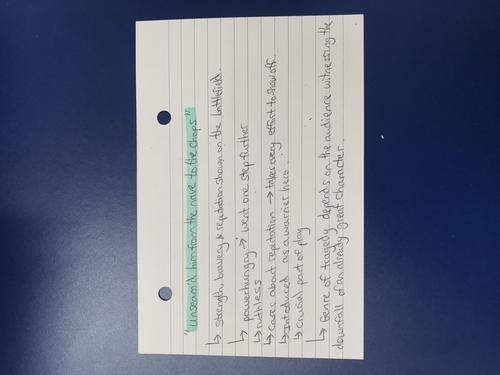 "unseam'd him from the nave to the chops"
↳ strength, bravery & reputation shown on the battlefield.
↳ powerhungry → went one step further
↳ ruthless
↳ cares about reputation → takes every effort to show off.
↳ introduced as a warrior hero.
↳ crucial part of play
↳ Genre of tragedy depends on the audience witnessing the
downfall of an already great character.